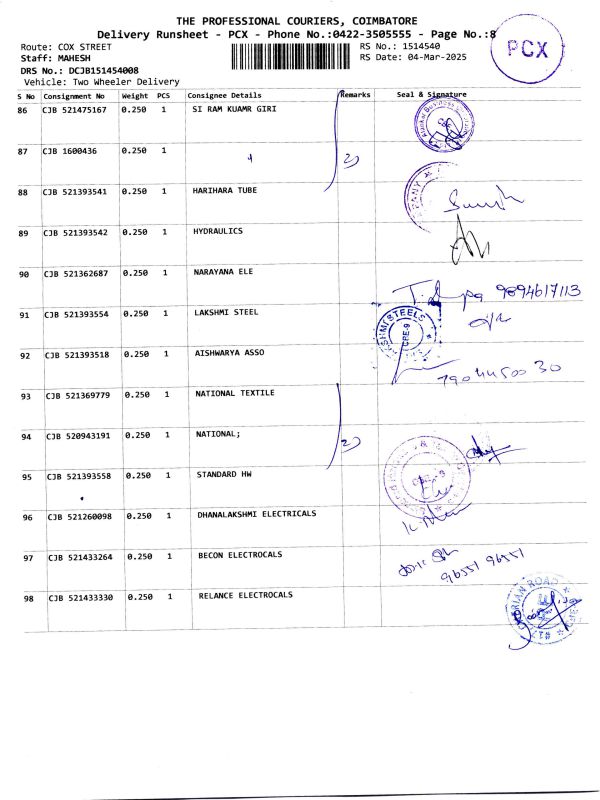 THE PROFESSIONAL COURIERS, COIMBATORE
Delivery Runsheet - PCX - Phone No.:0422-3505555 - Page No.:8
PCX
Route: COX STREET
RS No.: 1514540
Staff: MAHESH
RS Date: 04-Mar-2025
DRS No.: DCJB151454008
Vehicle: Two Wheeler Delivery
S No Consignment No Weight PCS Consignee Details Remarks Seal & Signature
86 CJB 521475167 0.250 1 SI RAM KUAMR GIRI
87 CJB 1600436 0.250 1
2)
88 CJB 521393541 0.250 1 HARIHARA TUBE
89 CJB 521393542 0.250 1 HYDRAULICS
90 CJB 521362687 0.250 1 NARAYANA ELE
9894617113
91 CJB 521393554 0.250 1 LAKSHMI STEEL
SHMI STEELS
CBE-9
92 CJB 521393518 0.250 1 AISHWARYA ASSO
93 CJB 521369779 0.250 1 NATIONAL TEXTILE
94 CJB 520943191 0.250 1 NATIONAL;
2)
95 CJB 521393558 0.250 1 STANDARD HW
96 CJB 521260098 0.250 1 DHANALAKSHMI ELECTRICALS
97 CJB 521433264 0.250 1 BECON ELECTROCALS
96551 96551
98 CJB 521433330 0.250 1 RELANCE ELECTROCALS